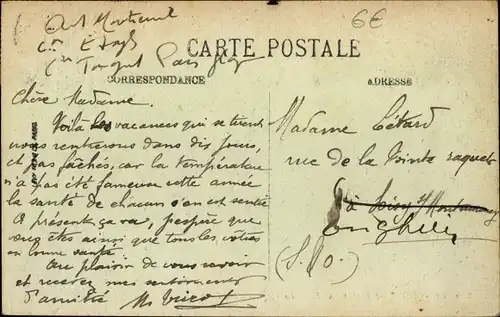 6€
CARTE POSTALE
CORRESPONDANCE
ADRESSE
Chère Madame.
Voilà les vacances qui se tirent
nous rentrerons dans dix jours,
et pas fâchés, car la température
n'a pas été fameuse cette année
la santé de chacun s'en est sentie
à présent ça va, j'espère que
vous êtes ainsi que tous les vôtres
en bonne santé.
Au plaisir de vous revoir
et recevez mes sentiments
d'amitié
Madame Cétard
rue de la Pointe raquet
à Soisy s/ Montmorency
Enghien
(S. &O.)